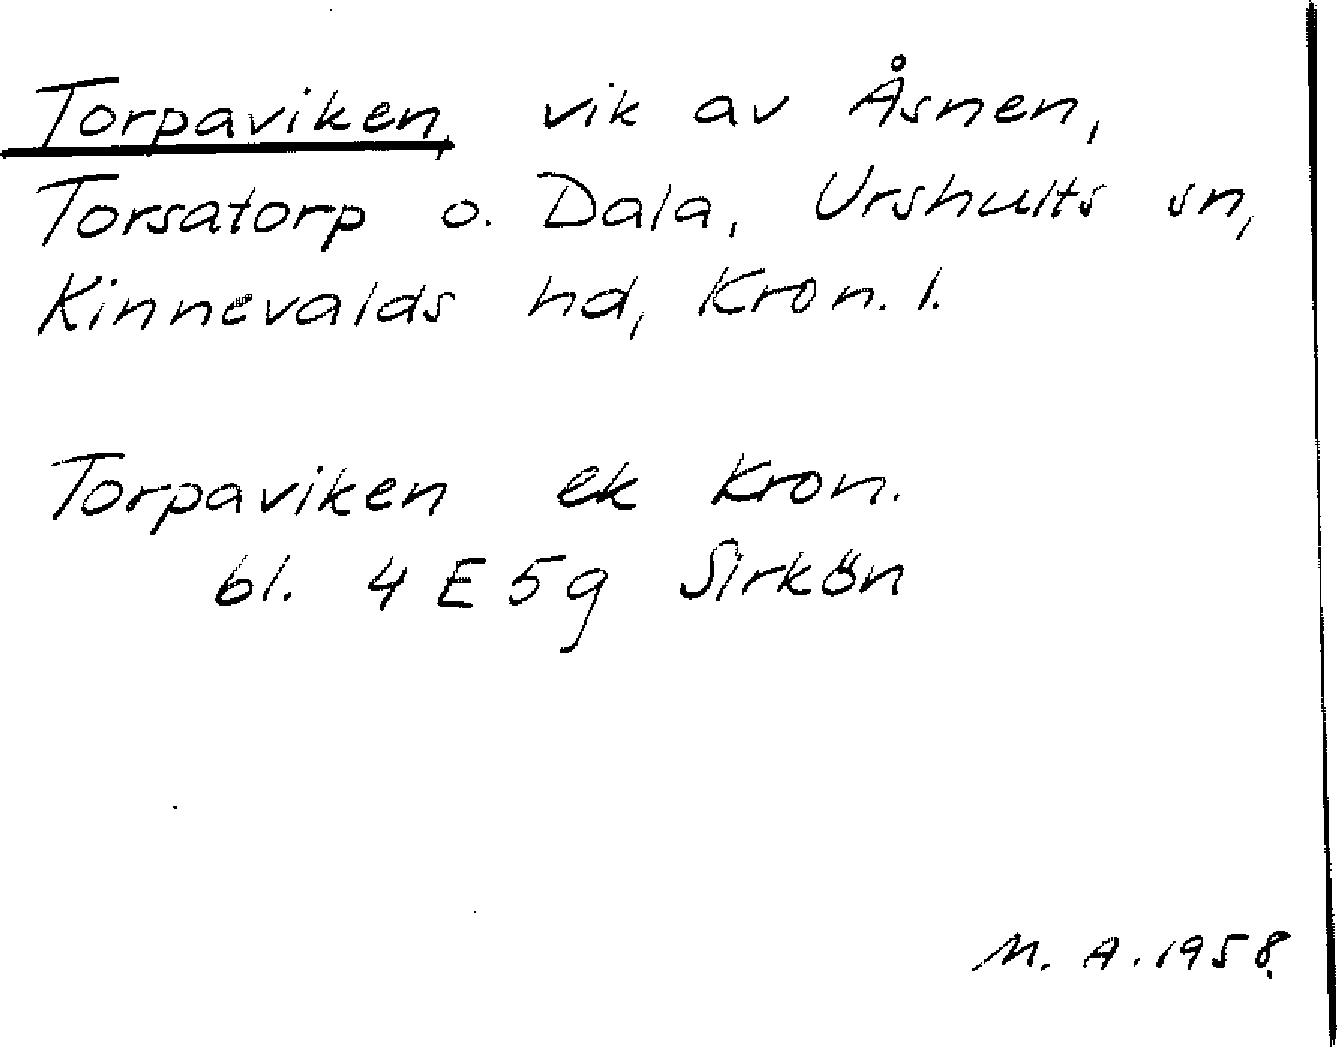 Torpaviken, vik av Åsnen,
Torsatorp o. Dala, Urshults sn,
Kinnevalds hd, Kron. l.
Torpaviken ek Kron.
bl. 4 E 5 g Sirkön
M. A. 1958.